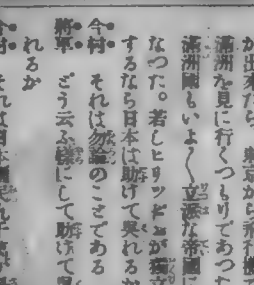 が出來たら　東京から飛行機で
滿洲を見に行くつもりであつた
滿洲國もいよ〱立派な帝國に
なつた。若しヒリッピンが獨立
するなら日本は助けて呉れるか
今村　それは勿論のことである
將軍　どう云ふ樣にして助けて呉
れるか
今村　それは日本